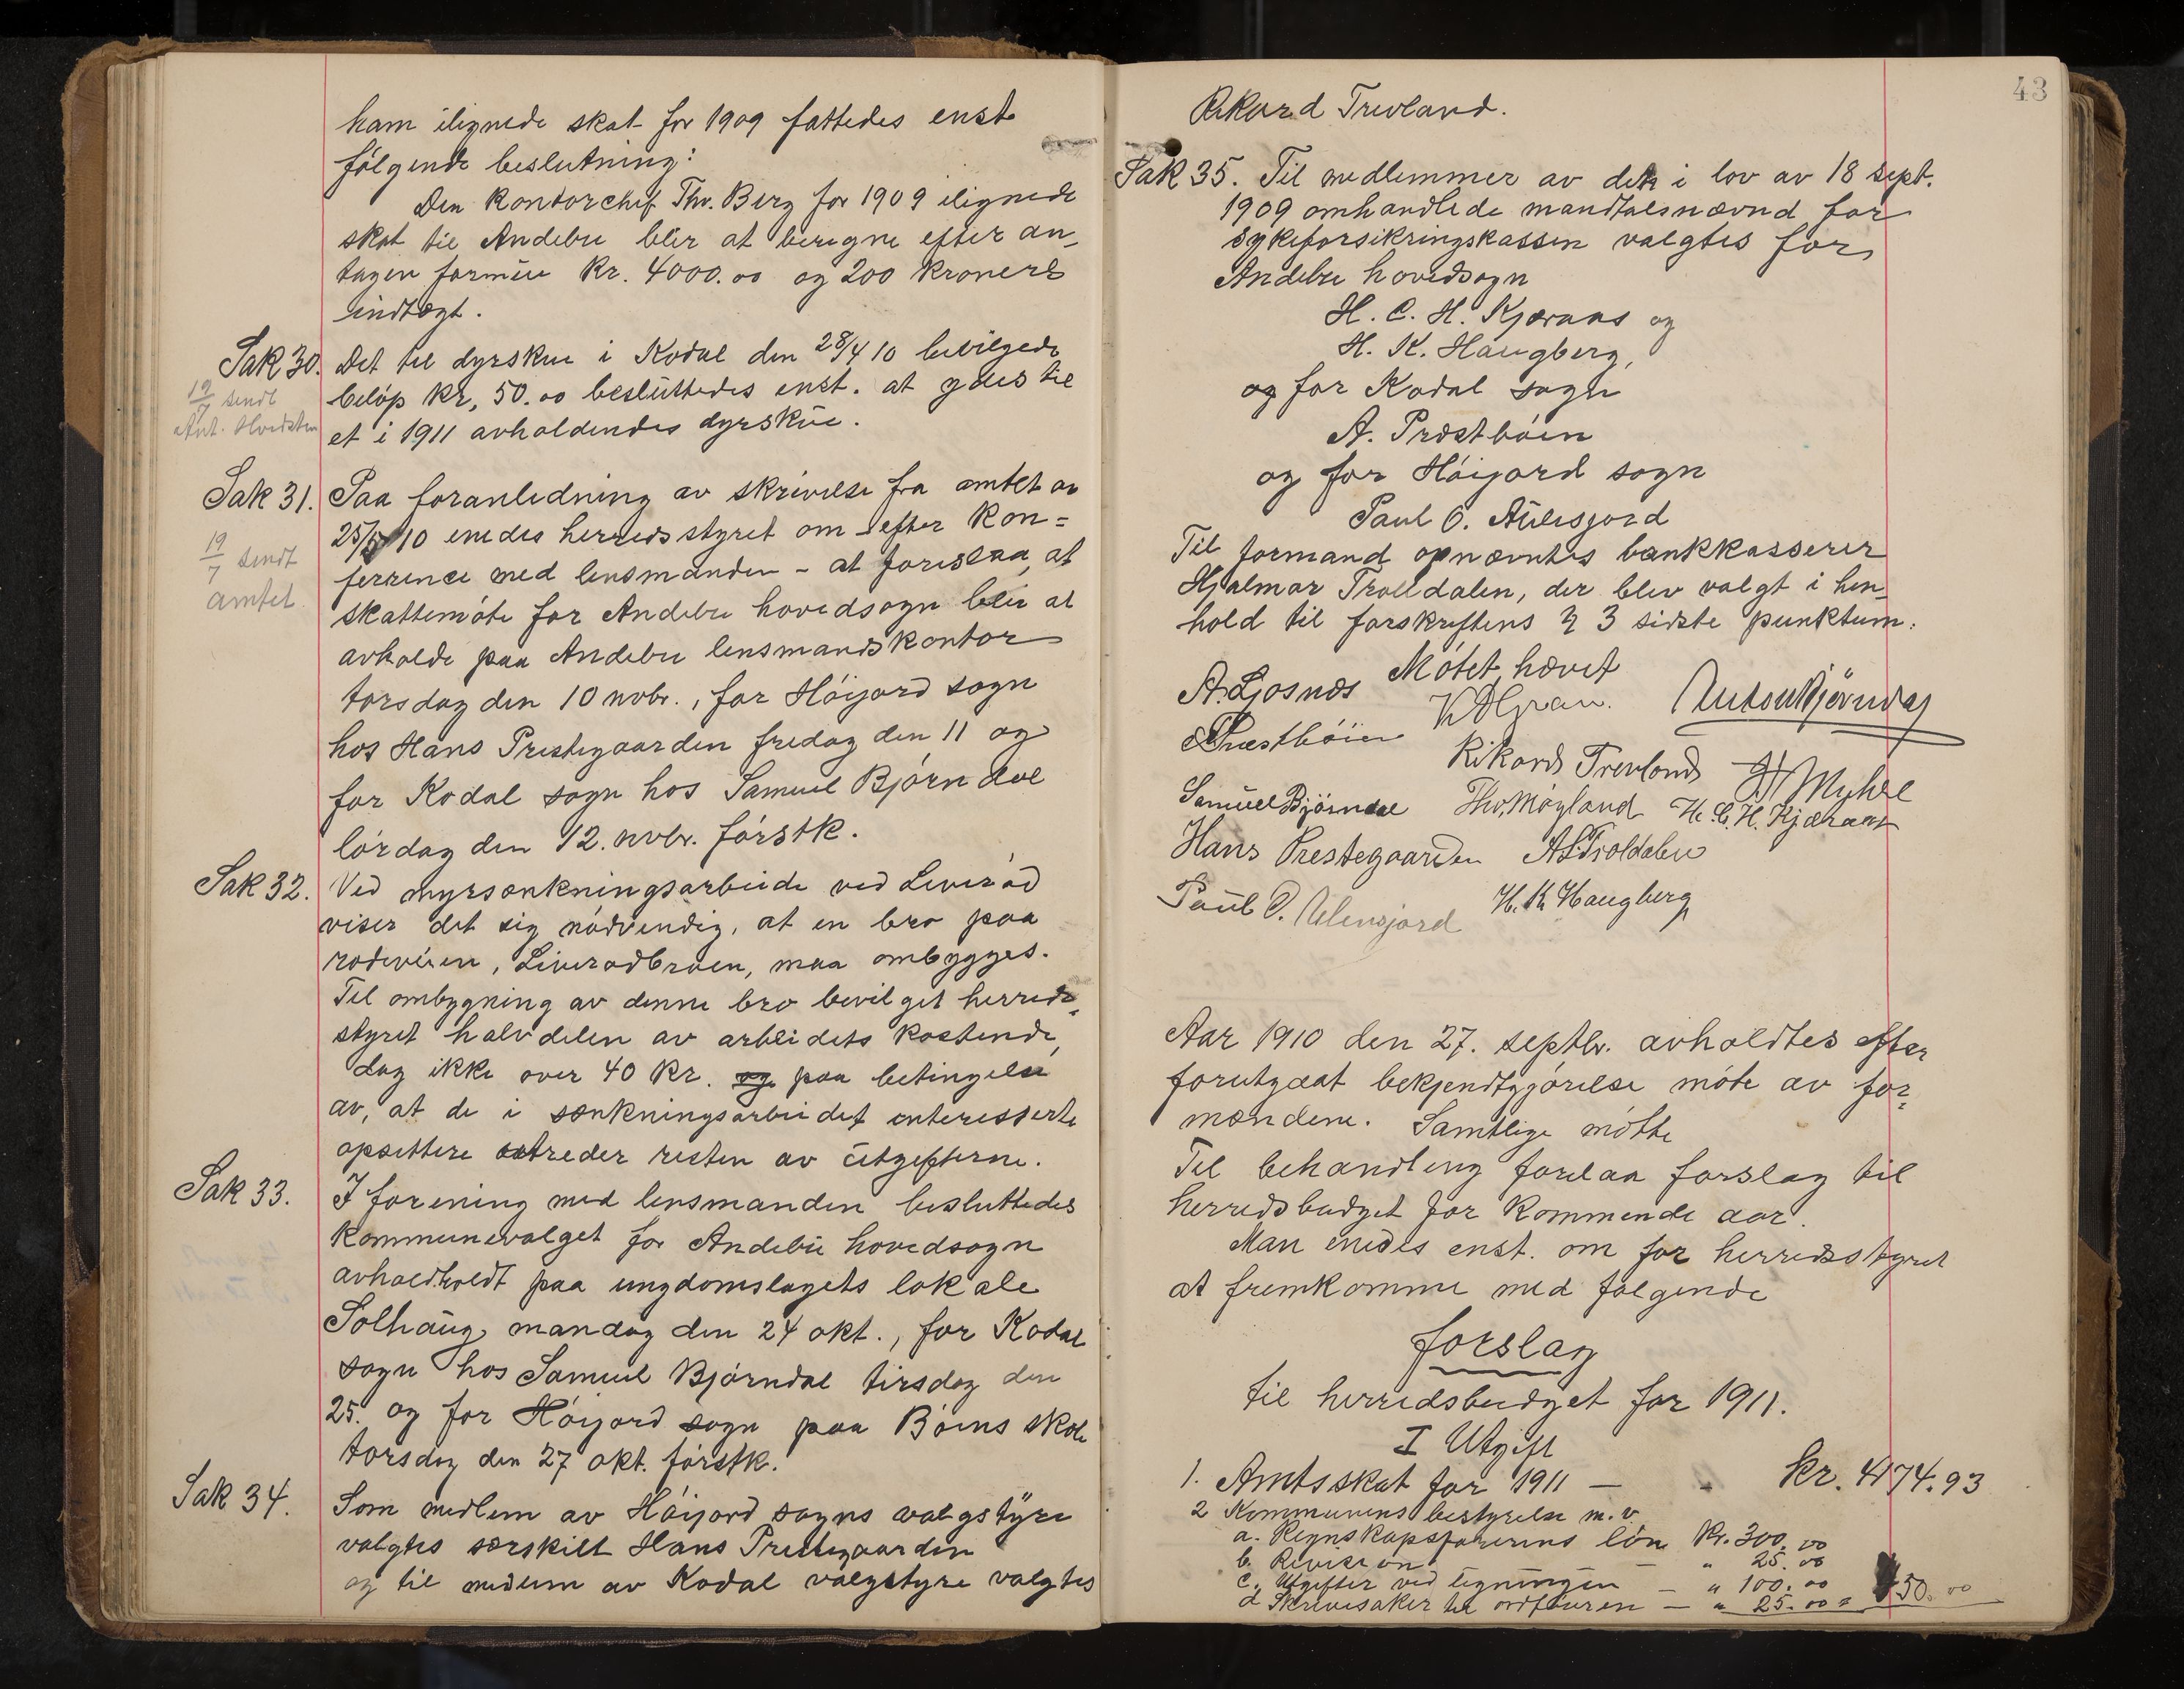 ham ilignede skat for 1909 fattedes enst.
følgende beslutning:
Den kontorchef Thv. Berg for 1909 ilignede
skat til Andebu blir at beregne efter an-
tagen formue kr. 4000.00 og 200 kroners
indtægt.
Sak 30. Det til dyrskue i Kodal den 28/4 10 bevilgede
beløp kr. 50.00 besluttedes enst. at ydes til
et i 1911 avholdendes dyrskue.
19/7 sendt
Ant. Hvidsten
Sak 31. Paa foranledning av skrivelse fra amtet av
25/5 10 enedes herredsstyret om – efter kon=
ferrence med lensmanden – at foreslaa, at
skattemøte for Andebu hovedsogn blir at
avholde paa Andebu lensmandskontor
torsdag den 10 novbr., for Høijord sogn
hos Hans Prestegaarden fredag den 11 og
for Kodal sogn hos Samuel Bjørndal
lørdag den 12. novbr. førstk.
19/7 sendt
amtet.
Sak 32. Ved myrsænkningsarbeide ved Liverød
viser det sig nødvendig, at en bro paa
rodeveien, Liverødbroen, maa ombygges.
Til ombygning av denne bro bevilget herreds-
styret halvdelen av arbeidets kostende,
dog ikke over 40 kr. og paa betingelse
av, at de i sænkningsarbeidet interesserte
opsittere utreder resten av utgifterne.
Sak 33. I forening med lensmanden besluttedes
kommunevalget for Andebu hovedsogn
avholdtholdt paa ungdomslagets lokale
Solhaug mandag den 24 okt., for Kodal
sogn hos Samuel Bjørndal tirsdag den
25. og for Høijord sogn paa Bøens skole
torsdag den 27 okt. førstk.
Sak 34. Som medlem av Høijord sogns valgstyre
valgtes særskilt Hans Prestegaarden
og til medlem av Kodal valgstyre valgtes
43
Rikard Trevland.
Sak 35. Til medlemmer av det i lov av 18 sept.
1909 omhandlede mandtalsnævnd for
sykeforsikringskassen valgtes for
Andebu hovedsogn
H. C. H. Kjæraas og
H. K. Haugberg,
og for Kodal sogn
A. Præstbøen
og for Høijord sogn
Paul O. Aulesjord
Til formand opnævntes bankkasserer
Hjalmar Trolldalen, der blev valgt i hen-
hold til forskriftens § 3 sidste punktum.
Møtet hævet
A. Gjosnæs
Anton Bjørndal
A Præstbøen
Rikard Trevland
Myhre
Samuel Bjørndal Thv. Møyland H. C. H. Kjæraas
Hans Prestegaarden A. Troldalen
Paul O. Ulensjord H. K. Haugberg
Aar 1910 den 27. septbr. avholdtes efter
forutgaat bekjendtgjørelse møte av for-
mændene. Samtlige møtte
Til behandling forelaa forslag til
herredsbudget for kommende aar.
Man enedes enst. om for herredsstyret
at fremkomme med følgende
forslag
til herredsbudget for 1911.
I Utgift
1. Amtsskat for 1911 — kr. 4174.93
2 Kommunens bestyrelse m. v.
a. Regnskapsførerens løn kr. 300.00
b. Revision — " 25.00
c. Utgifter ved ligningen — " 100.00
d Skrivesaker til ordføreren — " 25.00 = 450.00